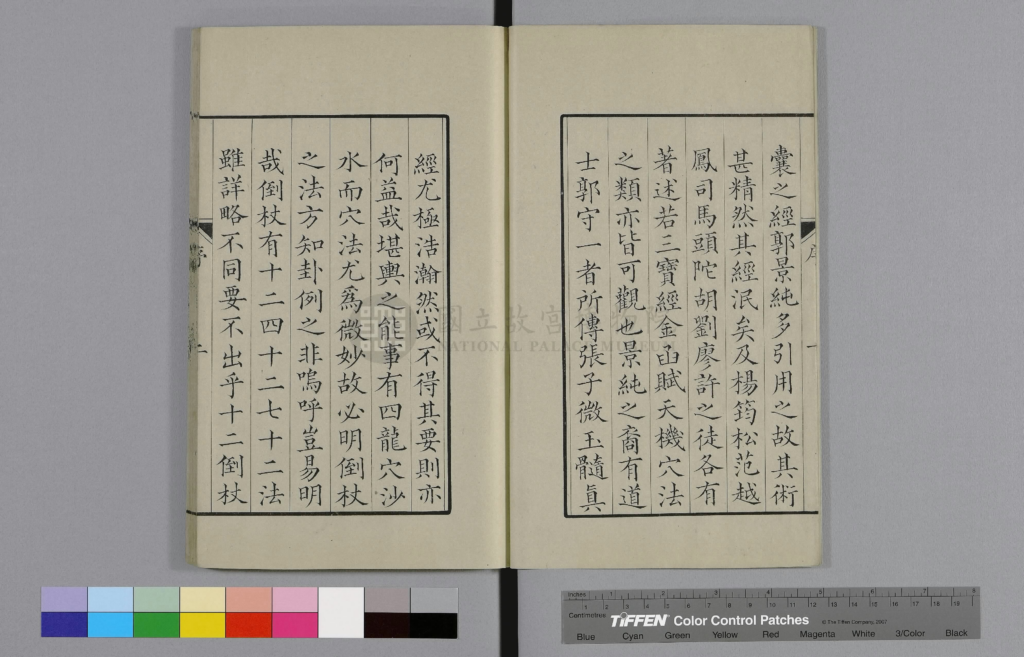 囊之經郭景純多引用之故其術
甚精然其經泯矣及楊筠松范越
鳳司馬頭陀胡劉廖許之徒各有
著述若三寶經金函賦天機穴法
之類亦皆可觀也景純之裔有道
士郭守一者所傳張子微玉髓眞
經尤極浩瀚然或不得其要則亦
何益哉堪輿之能事有四龍穴沙
水而穴法尤爲微妙故必明倒杖
之法方知卦例之非嗚呼豈易明
哉倒杖有十二四十二七十二法
雖詳略不同要不出乎十二倒杖
國立故宮博物院
NATIONAL PALACE MUSEUM
Inches
Centimetres
TIFFEN Color Control Patches
© The Tiffen Company, 2007
Blue Cyan Green Yellow Red Magenta White 3/Color Black